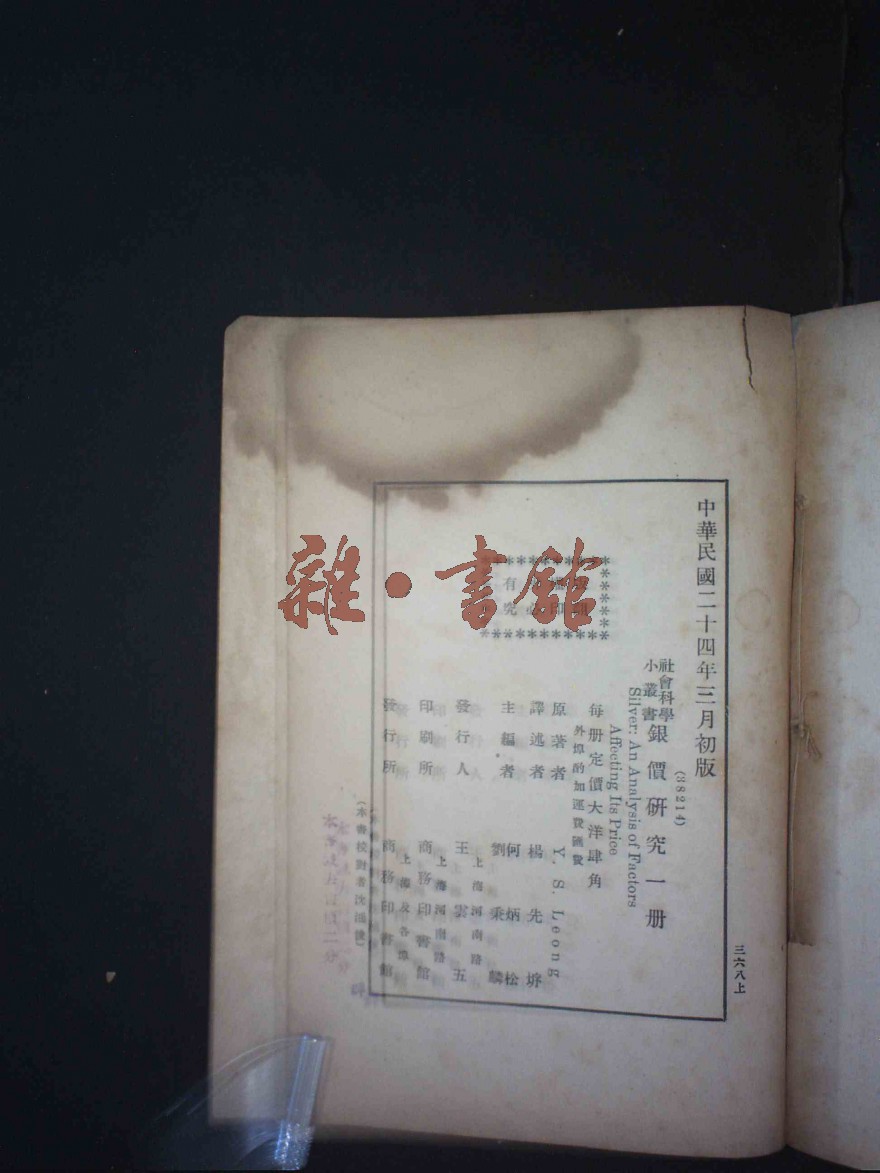 中華民國二十四年三月初版
(38214)
社會科學
小叢書
銀價研究一册
Silver: An Analysis of Factors
Affecting Its Price
每册定價大洋肆角
外埠酌加運費匯費
原著者 Y. S. Leong
譯述者 楊先垿
主編者 何炳松
劉秉麟
發行人 王雲五
上海河南路
印刷所 商務印書館
上海河南路
發行所 商務印書館
上海及各埠
(本書校對者沈
有
究必印
三六八上
雜·書館